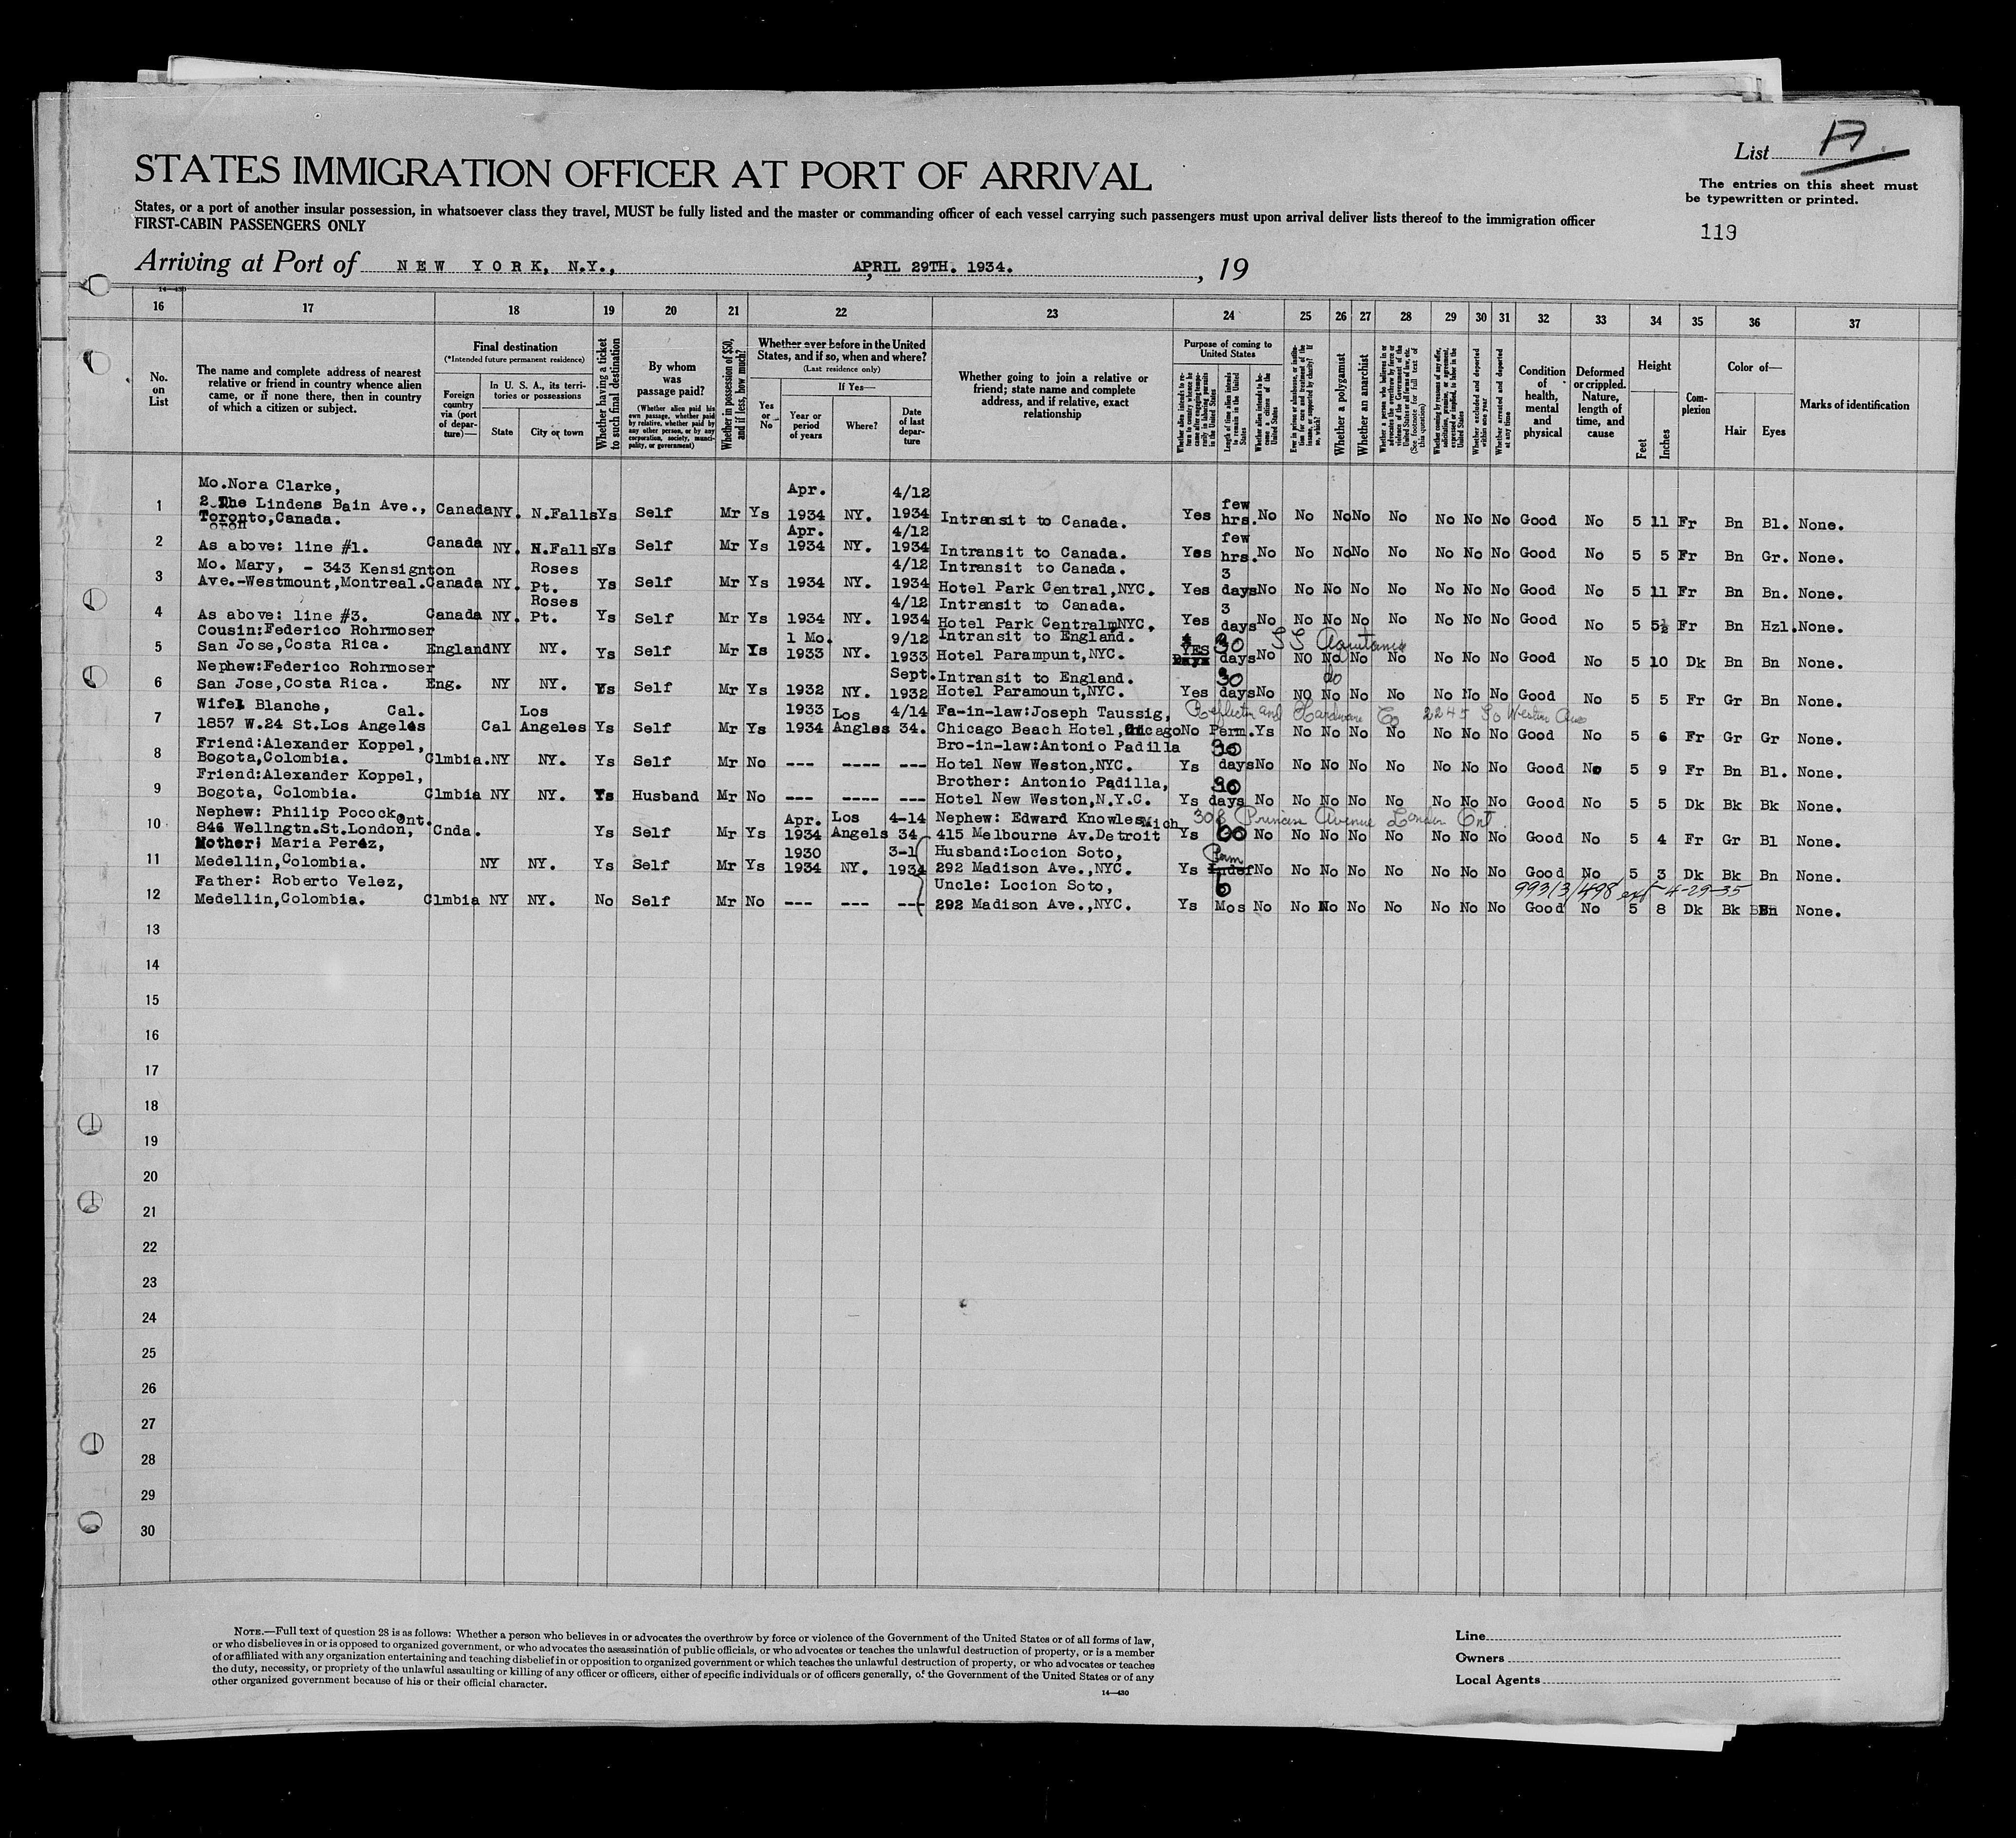 List A
The entries on this sheet must
be typewritten or printed.
119
STATES IMMIGRATION OFFICER AT PORT OF ARRIVAL
States, or a port of another insular possession, in whatsoever class they travel, MUST be fully listed and the master or commanding officer of each vessel carrying such passengers must upon arrival deliver lists thereof to the immigration officer
FIRST-CABIN PASSENGERS ONLY
Arriving at Port of NEW YORK, N.Y., APRIL 29TH. 1934. , 19
14—430
16 17 18 19 20 21 22 23 24 25 26 27 28 29 30 31 32 33 34 35 36 37
No. on List
The name and complete address of nearest relative or friend in country whence alien came, or if none there, then in country of which a citizen or subject.
Final destination
(*Intended future permanent residence)
Foreign country via (port of departure)—
In U. S. A., its territories or possessions
State
City or town
Whether having a ticket to such final destination
By whom was passage paid?
(Whether alien paid his own passage, whether paid by relative, whether paid by any other person, or by any corporation, society, municipality, or government)
Whether in possession of $50, and if less, how much?
Whether ever before in the United States, and if so, when and where?
(Last residence only)
Yes or No
If Yes—
Year or period of years
Where?
Date of last departure
Whether going to join a relative or friend; state name and complete address, and if relative, exact relationship
Purpose of coming to United States
Length of time alien intends to remain in the United States
Whether alien intends to become a citizen of the United States
Whether a polygamist
Whether an anarchist
Whether excluded and deported within one year
Whether arrested and deported at any time
Condition of health, mental and physical
Deformed or crippled. Nature, length of time, and cause
Height
Feet
Inches
Complexion
Color of—
Hair
Eyes
Marks of identification
1 Mo.Nora Clarke, 2 The Lindens Bain Ave., Toronto,Canada. Canada NY. N.Falls Ys Self Mr Ys Apr. 1934 NY. 4/12 1934 Intransit to Canada. Yes few hrs. No No No No No No No No Good No 5 11 Fr Bn Bl. None.
2 As above: line #1. Canada NY. N.Falls Ys Self Mr Ys Apr. 1934 NY. 4/12 1934 Intransit to Canada. Yes few hrs. No No No No No No No No Good No 5 5 Fr Bn Gr. None.
3 Mo. Mary, - 343 Kensignton Ave.-Westmount,Montreal. Canada NY. Roses Pt. Ys Self Mr Ys 1934 NY. 4/12 1934 Intransit to Canada. Hotel Park Central,NYC. Yes 3 days No No No No No No No No Good No 5 11 Fr Bn Bn. None.
4 As above: line #3. Canada NY. Roses Pt. Ys Self Mr Ys 1934 NY. 4/12 1934 Intransit to Canada. Hotel Park Central,NYC. Yes 3 days No No No No No No No No Good No 5 5½ Fr Bn Hzl. None.
5 Cousin:Federico Rohrmoser San Jose,Costa Rica. England NY NY. Ys Self Mr Ys 1 Mo. 1933 NY. 9/12 1933 Intransit to England. Hotel Parampunt,NYC. YES 30 days SS Aquitania No NO No No No No No No Good No 5 10 Dk Bn Bn None.
6 Nephew:Federico Rohrmoser San Jose,Costa Rica. Eng. NY NY. Ys Self Mr Ys 1932 NY. Sept. 1932 Intransit to England. Hotel Paramount,NYC. Yes 30 days do No NO No No No No No No Good No 5 5 Fr Gr Bn None.
7 Wife: Blanche, Cal. 1857 W.24 St.Los Angeles Cal Los Angeles Ys Self Mr Ys 1933 1934 Los Angles 4/14 34. Fa-in-law:Joseph Taussig, Chicago Beach Hotel,Chicago Reflector and Hardware Co 2245 So Western Ave No Perm. Ys No No No No No No No Good No 5 6 Fr Gr Gr None.
8 Friend:Alexander Koppel, Bogota,Colombia. Clmbia. NY NY. Ys Self Mr No --- ---- --- Bro-in-law:Antonio Padilla Hotel New Weston,NYC. Ys days No No No No No No No No Good No 5 9 Fr Bn Bl. None.
9 Friend:Alexander Koppel, Bogota, Colombia. Clmbia NY NY. Ys Husband Mr No --- ---- --- Brother: Antonio Padilla, Hotel New Weston,N.Y.C. Ys days No No No No No No No No Good No 5 5 Dk Bk Bk None.
10 Nephew: Philip Pocock 846 Wellngtn.St.London, Ont. Cnda. Ys Self Mr Ys Apr. 1934 Los Angels 4-14 34 Nephew: Edward Knowles 415 Melbourne Av.Detroit Mich 308 Princess Avenue London Ont Ys 60 No No No No No No No No Good No 5 4 Fr Gr Bl None.
11 Mother: Maria Peréz, Medellin,Colombia. NY NY. Ys Self Mr Ys 1930 1934 NY. 3-1 1934 Husband:Locion Soto, 292 Madison Ave.,NYC. Ys Perm Indef No No No No No No No No Good No 5 3 Dk Bk Bn None.
12 Father: Roberto Velez, Medellin,Colombia. Clmbia NY NY. No Self Mr No --- --- --- Uncle: Locion Soto, 292 Madison Ave.,NYC. Ys 6 Mos No No No No No No No No 99313/498 ext-4-29-35 Good No 5 8 Dk Bk Bn None.
13
14
15
16
17
18
19
20
21
22
23
24
25
26
27
28
29
30
NOTE.—Full text of question 28 is as follows: Whether a person who believes in or advocates the overthrow by force or violence of the Government of the United States or of all forms of law,
or who disbelieves in or is opposed to organized government, or who advocates the assassination of public officials, or who advocates or teaches the unlawful destruction of property, or is a member
of or affiliated with any organization entertaining and teaching disbelief in or opposition to organized government or which teaches the unlawful destruction of property, or who advocates or teaches
the duty, necessity, or propriety of the unlawful assaulting or killing of any officer or officers, either of specific individuals or of officers generally, of the Government of the United States or of any
other organized government because of his or their official character.
14—430
Line
Owners
Local Agents